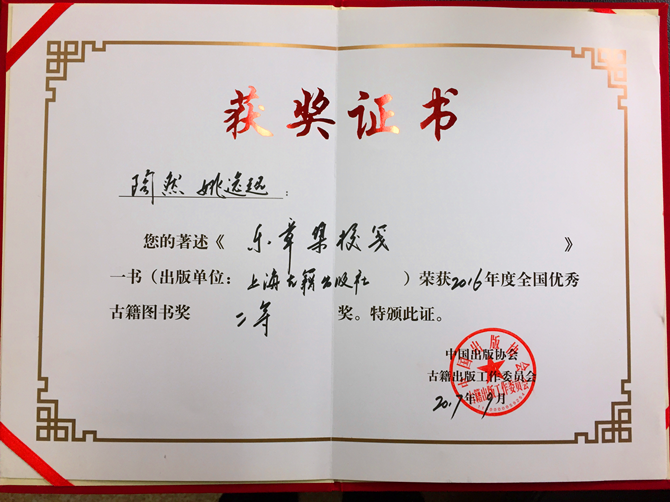 获奖证书
陶然 姚逸超：
您的著述《乐章集校笺》
一书（出版单位：上海古籍出版社）荣获2016年度全国优秀
古籍图书奖 二等 奖。特颁此证。
中国出版协会
古籍出版工作委员会
2017年9月